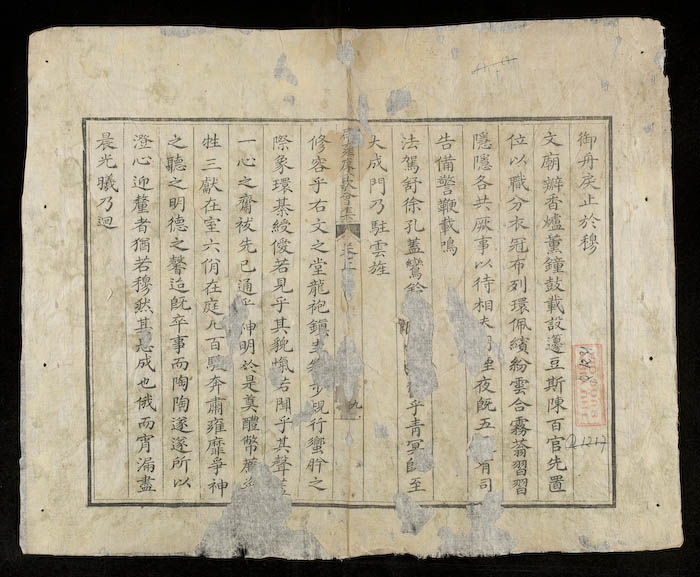 御舟戾止於穆
文廟辦香爐薰鐘鼓載設籩豆斯陳百官先置
位以職分衣冠布列環佩繽紛雲合霧蓊習習
隱隱各共厥事以待相夜既五有司
告備警鞭載鳴
法駕舒徐孔蓋鸞乎青冥至
大成門乃駐雲旌
卷三
九
修容乎右文之堂龍袍規行蠁肸之
際象環綦綬僾若見乎其貌愾若聞乎其聲
一心之齋祓先已通乎神明於是奠醴幣薦
牲三獻在室六佾在庭凡百駿奔肅雍靡爭神
之聽之明德之馨迨既卒事而陶陶遂遂所以
澄心迎釐者猶若穆然其成也俄而宵漏盡
晨光曦乃迴